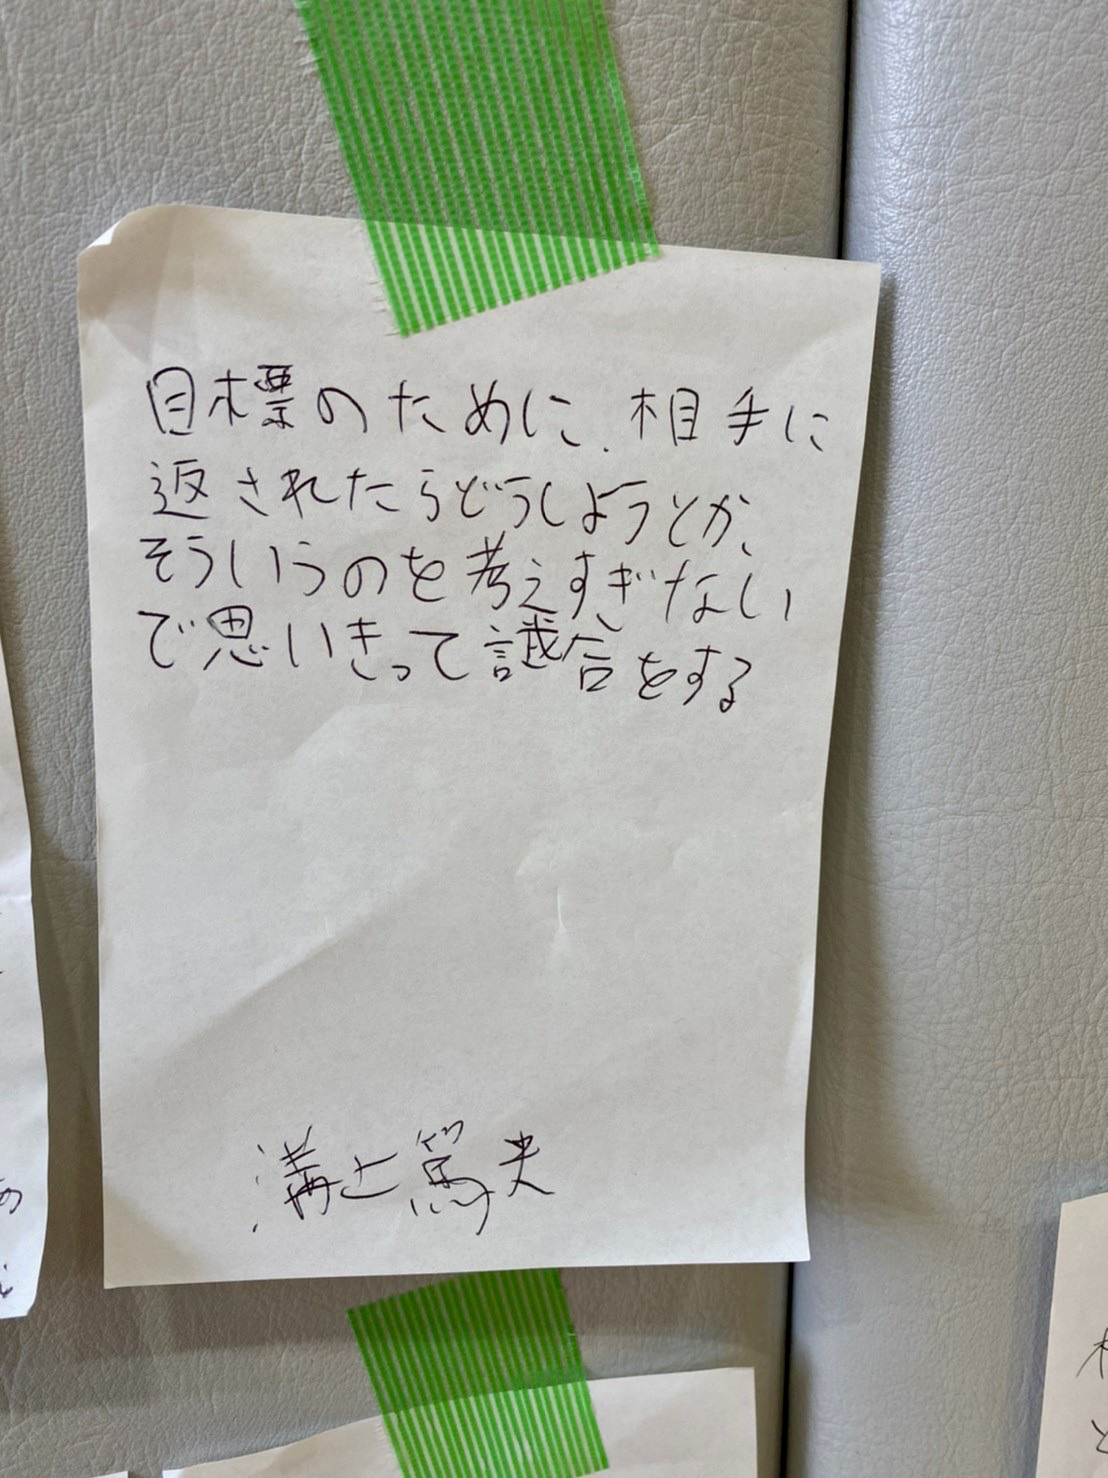 目標のために、相手に
返されたらどうしようとか、
そういうのを考えすぎない
で思いきって試合をする
溝上篤史